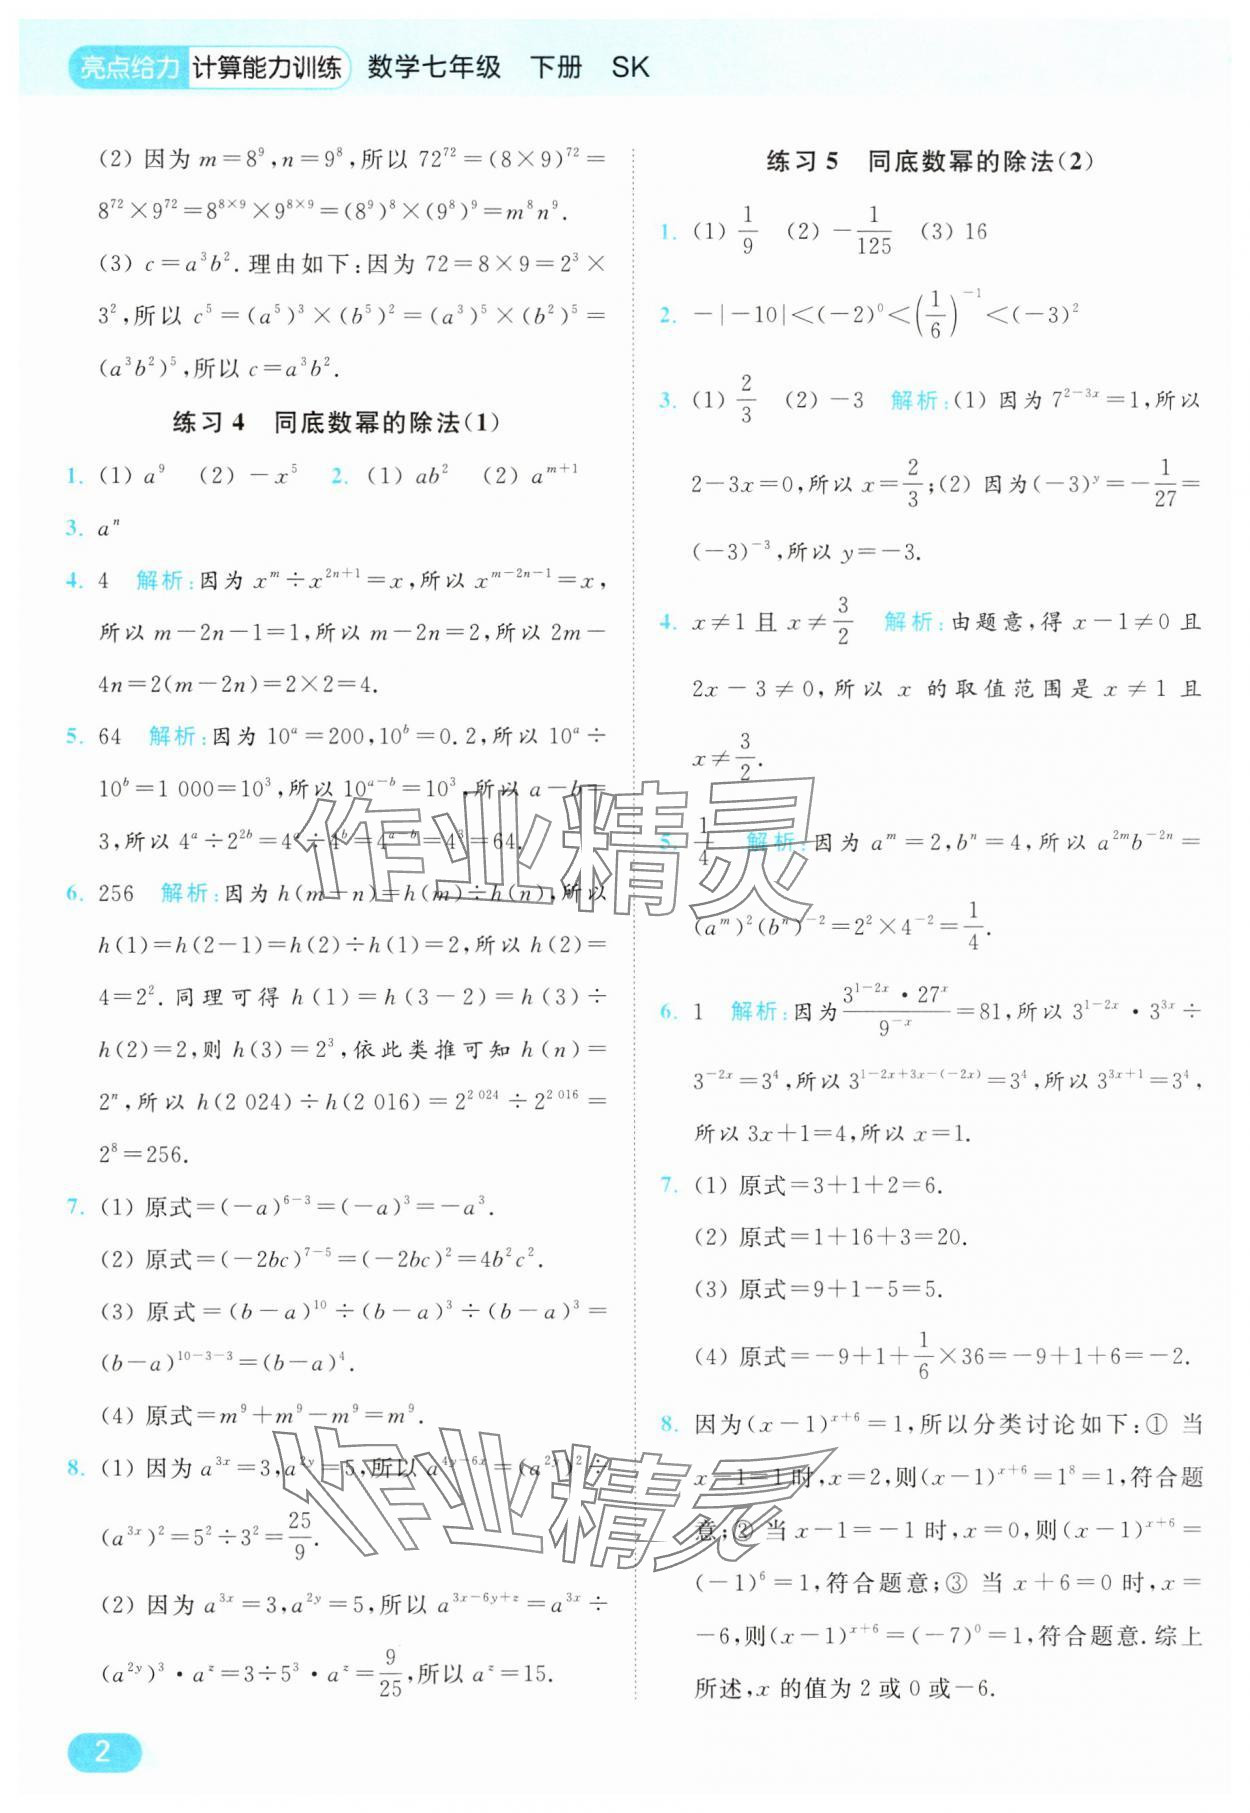 亮点给力 计算能力训练 数学七年级 下册 SK
(2) 因为 m=8⁹,n=9⁸,所以 72⁷²=(8×9)⁷²=
8⁷²×9⁷²=8⁸ˣ⁹×9⁸ˣ⁹=(8⁹)⁸×(9⁸)⁹=m⁸n⁹.
(3) c=a³b².理由如下:因为 72=8×9=2³×
3²,所以 c⁵=(a⁵)³×(b⁵)²=(a³)⁵×(b²)⁵=
(a³b²)⁵,所以 c=a³b².
练习 4 同底数幂的除法(1)
1. (1) a⁹ (2) -x⁵ 2. (1) ab² (2) a^{m+1}
3. aⁿ
4. 4 解析:因为 x^m÷x^{2n+1}=x,所以 x^{m-2n-1}=x,
所以 m-2n-1=1,所以 m-2n=2,所以 2m-
4n=2(m-2n)=2×2=4.
5. 64 解析:因为 10^a=200,10^b=0.2,所以 10^a÷
10^b=1 000=10³,所以 10^{a-b}=10³,所以 a-b=
3,所以 4^a÷2^{2b}=4^a÷4^b=4^{a-b}=4³=64.
6. 256 解析:因为 h(m-n)=h(m)÷h(n),所以
h(1)=h(2-1)=h(2)÷h(1)=2,所以 h(2)=
4=2².同理可得 h(1)=h(3-2)=h(3)÷
h(2)=2,则 h(3)=2³,依此类推可知 h(n)=
2ⁿ,所以 h(2 024)÷h(2 016)=2^{2 024}÷2^{2 016}=
2⁸=256.
7. (1) 原式=(-a)^{6-3}=(-a)³=-a³.
(2) 原式=(-2bc)^{7-5}=(-2bc)²=4b²c².
(3) 原式=(b-a)¹⁰÷(b-a)³÷(b-a)³=
(b-a)^{10-3-3}=(b-a)⁴.
(4) 原式=m⁹+m⁹-m⁹=m⁹.
8. (1) 因为 a^{3x}=3,a^{2y}=5,所以 a^{4y-6x}=(a^{2y})²÷
(a^{3x})²=5²÷3²=25/9.
(2) 因为 a^{3x}=3,a^{2y}=5,所以 a^{3x-6y+z}=a^{3x}÷
(a^{2y})³·a^z=3÷5³·a^z=9/25,所以 a^z=15.
练习 5 同底数幂的除法(2)
1. (1) 1/9 (2) -1/125 (3) 16
2. -|-10|<(-2)⁰<(1/6)^{-1}<(-3)²
3. (1) 2/3 (2) -3 解析:(1) 因为 7^{2-3x}=1,所以
2-3x=0,所以 x=2/3;(2) 因为(-3)^y=-1/27=
(-3)^{-3},所以 y=-3.
4. x≠1 且 x≠3/2 解析:由题意,得 x-1≠0 且
2x-3≠0,所以 x 的取值范围是 x≠1 且
x≠3/2.
5. 1/4 解析:因为 a^m=2,bⁿ=4,所以 a^{2m}b^{-2n}=
(a^m)²(bⁿ)^{-2}=2²×4^{-2}=1/4.
6. 1 解析:因为 (3^{1-2x}·27^x)/(9^{-x})=81,所以 3^{1-2x}·3^{3x}÷
3^{-2x}=3⁴,所以 3^{1-2x+3x-(-2x)}=3⁴,所以 3^{3x+1}=3⁴,
所以 3x+1=4,所以 x=1.
7. (1) 原式=3+1+2=6.
(2) 原式=1+16+3=20.
(3) 原式=9+1-5=5.
(4) 原式=-9+1+1/6×36=-9+1+6=-2.
8. 因为(x-1)^{x+6}=1,所以分类讨论如下:① 当
x-1=1 时,x=2,则(x-1)^{x+6}=1⁸=1,符合题
意;② 当 x-1=-1 时,x=0,则(x-1)^{x+6}=
(-1)⁶=1,符合题意;③ 当 x+6=0 时,x=
-6,则(x-1)^{x+6}=(-7)⁰=1,符合题意.综上
所述,x 的值为 2 或 0 或-6.
作业精灵
作业精灵
2